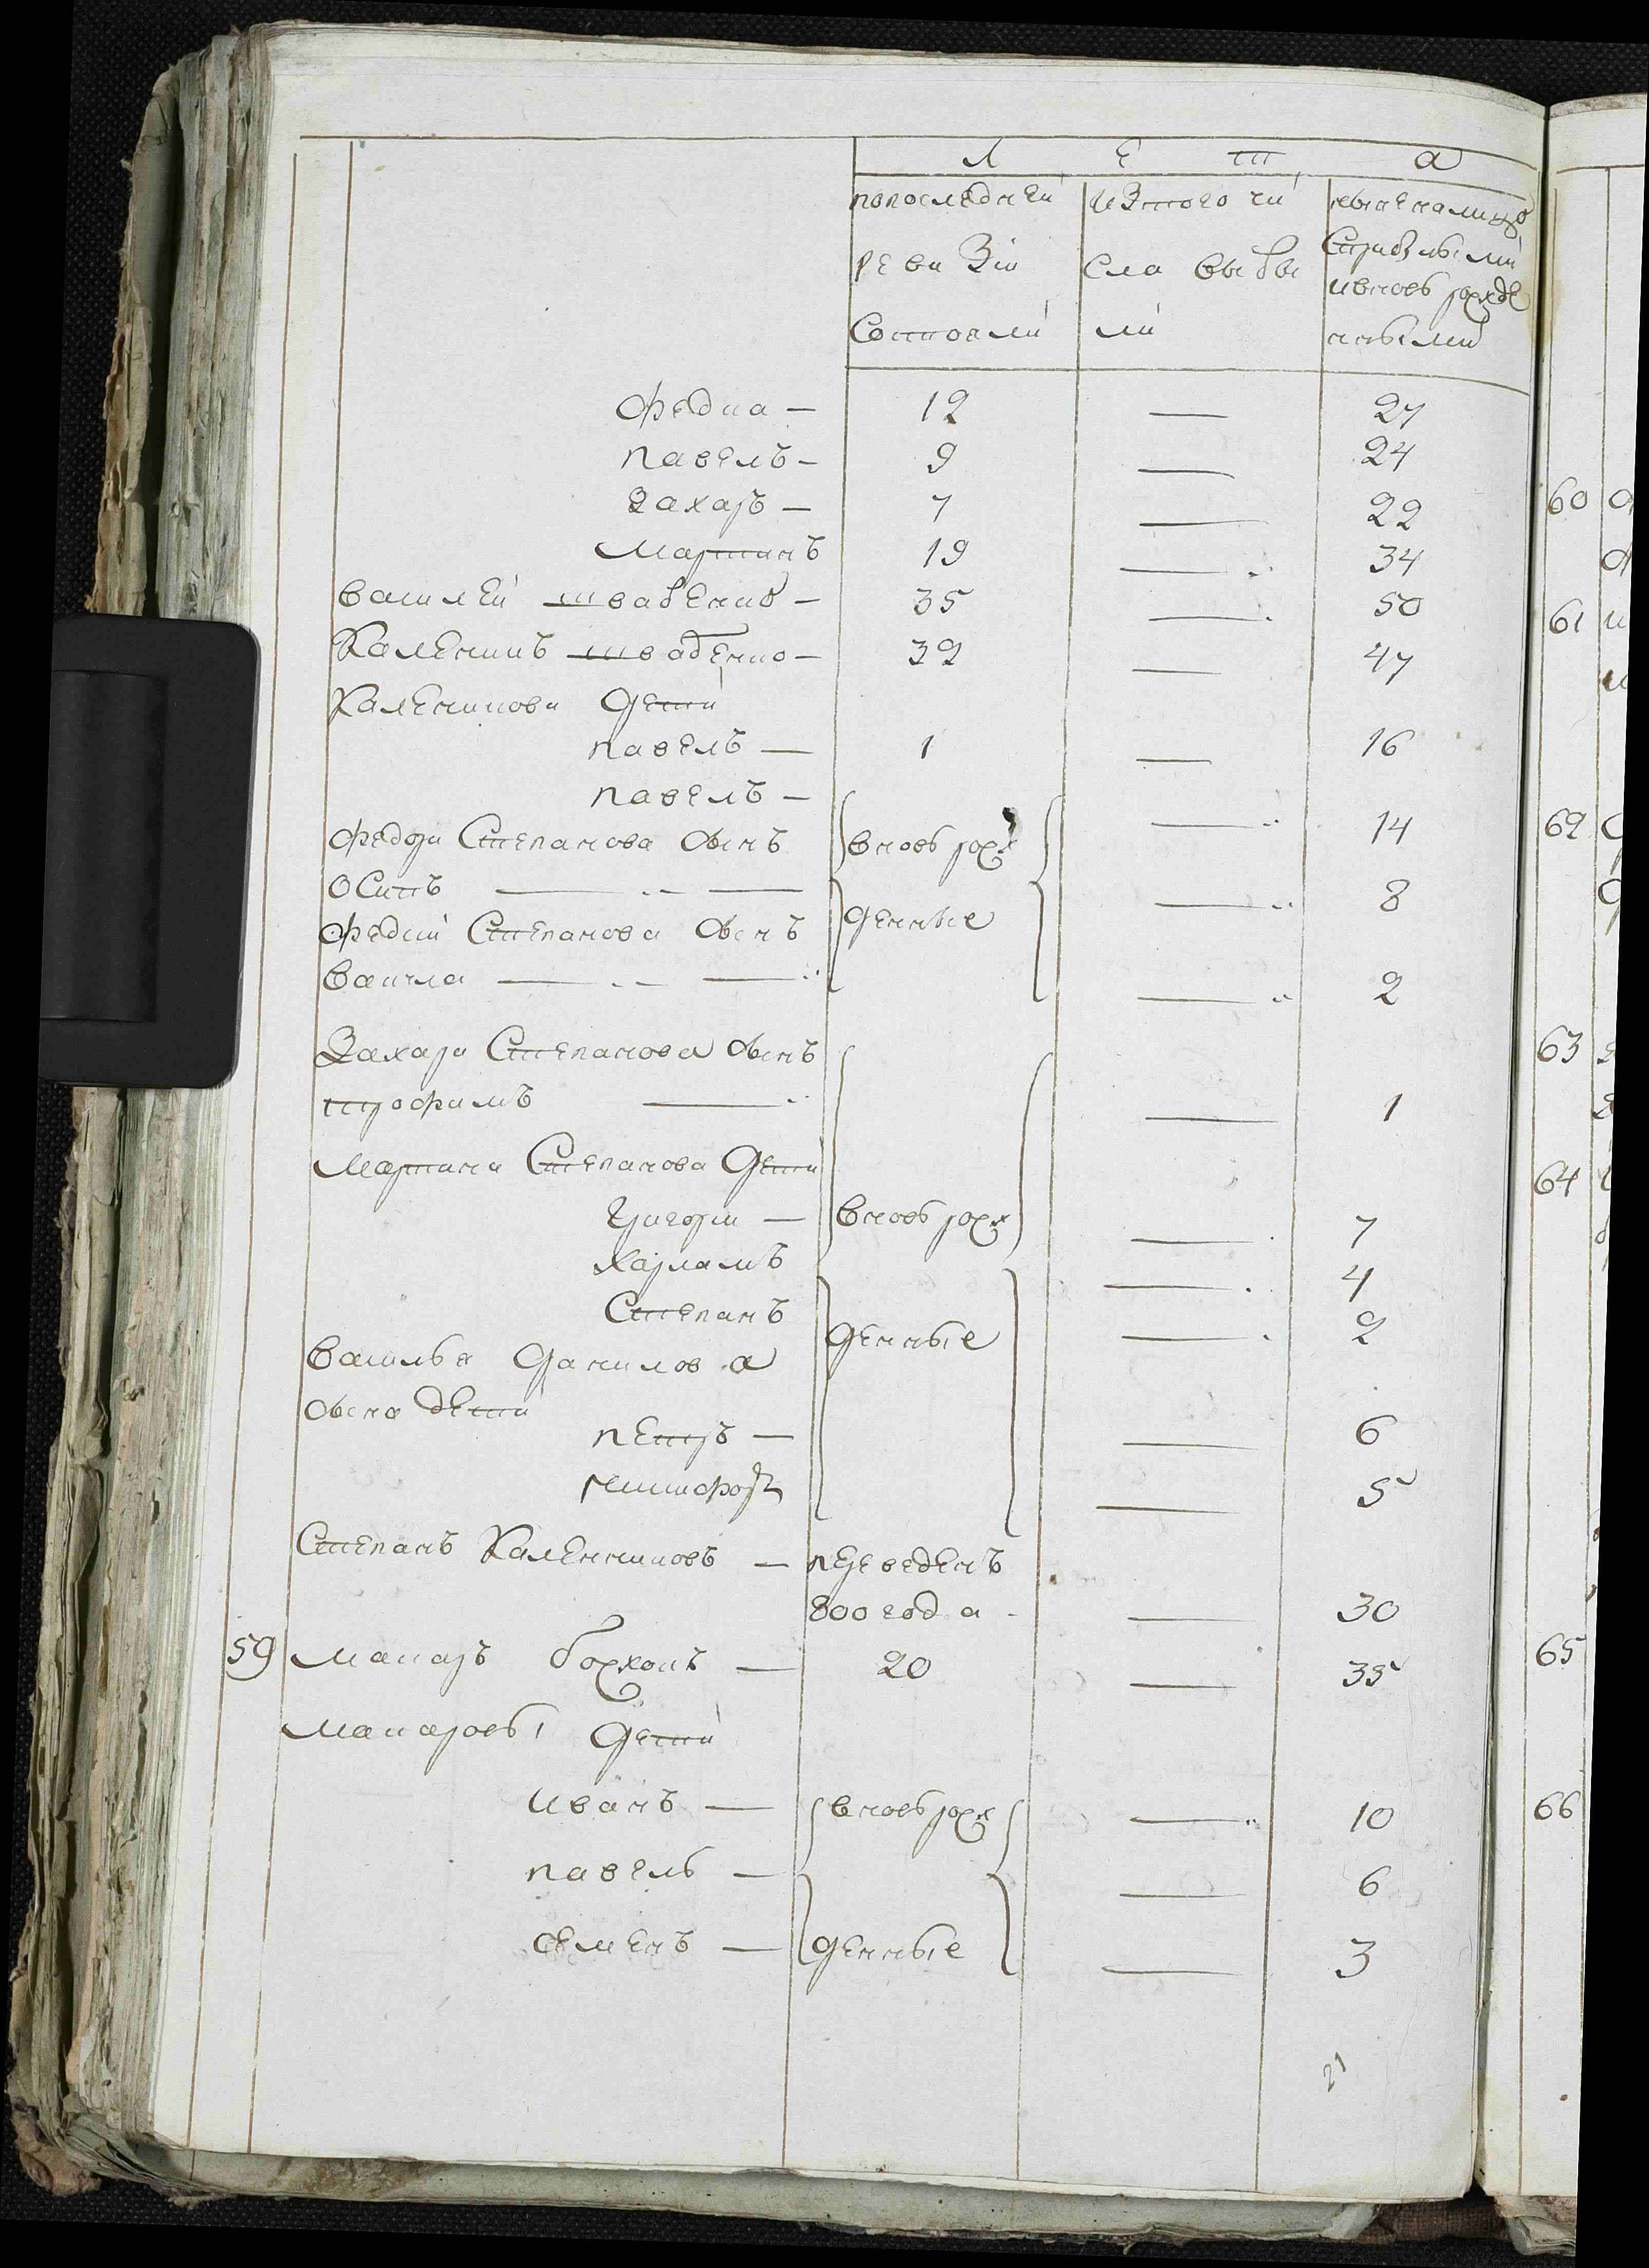 Л Е Т А
попоследней изтого чи ныненалицо
ревизіи сла выбы Сприбылыми
ивновь рожде
Состояли ли нными
Федка — 12 — 27
павелъ — 9 — 24
Захаръ — 7 — 22
Мартинъ 19 — 34
Василей швабенко — 35 — 50
Каленикъ швабенко — 32 — 47
Каленикови дети
павелъ — 1 — 16
павелъ — — 14
Федора Степанова сынъ вновь рож
Осипъ — — 8
Федки Степанова сынъ денные
Вакула — — 2
Захара Степанова сынъ
трофимъ — — 1
Мартина Степанова дети
Григори — вновь рож — 7
Харламъ — 4
Степанъ — 2
Василья данилова денные
сына дети
петръ — — 6
никифоръ — 5
Степанъ Каленниковъ — переведенъ
800 года — 30
59 Макаръ боржокъ — 20 — 35
Макаровы дети
иванъ — вновь рож — 10
павелъ — — 6
семенъ — денные — 3
21
60
61
62
63
64
65
66